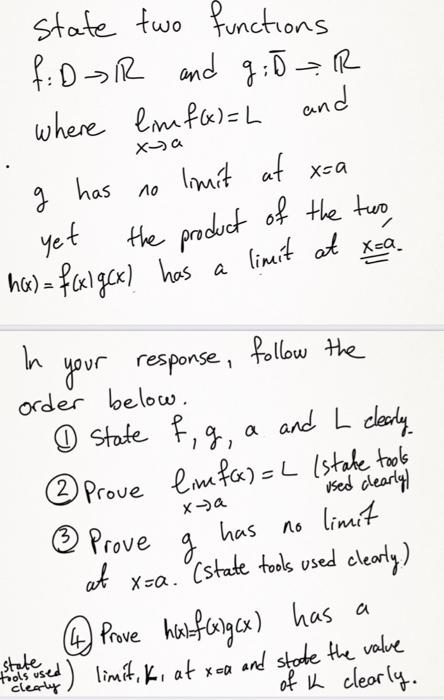 State two functions
f: D → ℝ and g: D̄ → ℝ
where lim f(x) = L and
x→a
g has no limit at x=a
yet the product of the two,
h(x) = f(x)g(x) has a limit at x=a.
In your response, follow the
order below.
① State f, g, a and L clearly.
② Prove lim f(x) = L (state tools
x→a used clearly)
③ Prove g has no limit
at x=a. (state tools used clearly.)
④ Prove h(x)=f(x)g(x) has a
limit, K, at x=a and state the value
of K clearly.
(state tools used clearly)